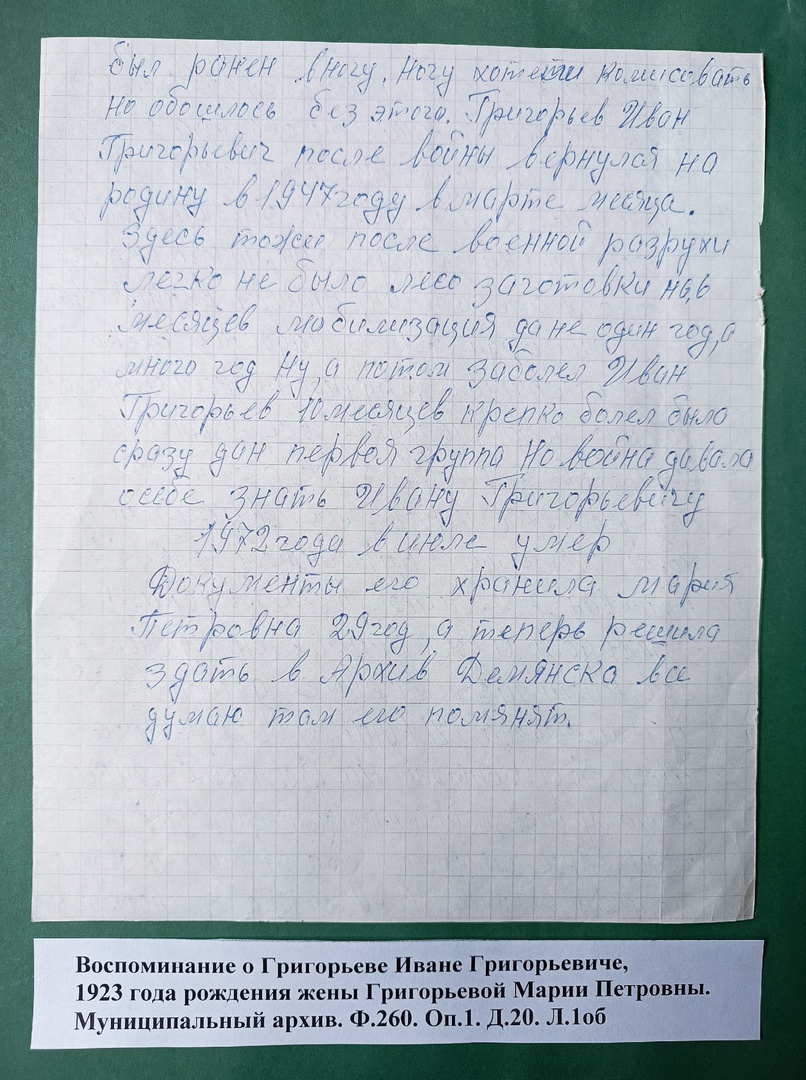 был ранен вногу, ногу хотели комисовать
но обошлось без этого. Григорьев Иван
Григорьевич после войны вернулся на
родину в 1947году вмарте месяца.
Здесь тоже после военной разрухи
легко не было лесо заготовки на 6
месяцев мобилизация да не один год, а
много год Ну, а потом заболел Иван
Григорьев 10месяцев крепко болел было
сразу дан первая группа Но война давала
о себе знать Ивану Григорьевичу
1972года виюле умер
Документы его хранила Мария
Петровна 29год, а теперь решила
здать в Архив Демянска все
думаю там его помянят.
Воспоминание о Григорьеве Иване Григорьевиче,
1923 года рождения жены Григорьевой Марии Петровны.
Муниципальный архив. Ф.260. Оп.1. Д.20. Л.1об